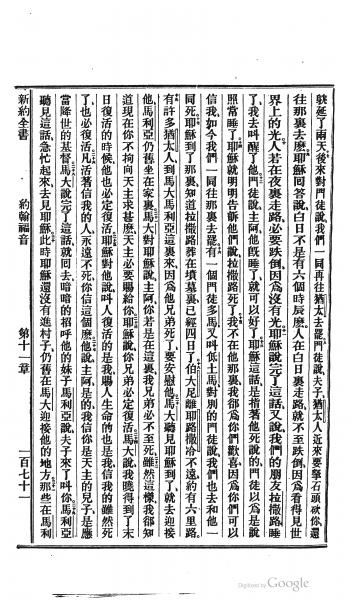 就延了兩天後來對門徒說我們一同再往猶太去罷門徒說夫子猶太人近來要拏石頭砍你還
往那裏去麽耶穌回答說白日不是有六個時辰麽人在白日裏走路就不至跌倒因爲看得見世
界上的光人若在夜裏走路必要跌倒因爲沒有光耶穌說完了這話又說我們的朋友拉撒路睡
了我去叫醒了他門徒說主阿他旣睡了就可以好了耶穌這話是指著他死說的門徒以爲是說
照常睡了耶穌就明明告訴他們說拉撒路死了我不在他那裏我都爲你們歡喜因爲你們可以
信我如今我們一同往那裏去罷有一個門徒多馬又叫低土馬對別的門徒說我們也去和他一
同死耶穌到了那裏知道拉撒路葬在墳墓裏已經四日了伯大尼離耶路撒冷不遠約有六里路
有許多猶太人到馬大馬利亞這裏來因爲他兄弟死了要安慰他馬大聽見耶穌到了就去迎接
他馬利亞仍舊坐在家裏馬大對耶穌說主阿你若是在這裏我兄弟必不至死雖然這樣我都知
道現在你不拘向天主求甚麽天主必要賜給你耶穌說你兄弟必定復活馬大說我曉得到了末
日復活的時候他也必定復活耶穌對他說叫人復活的是我賜人生命的也是我信我的雖然死
了也必復活凡活著信我的人永遠不死你信這個麽他說主阿是的我信你是天主的兒子是應
當降世的基督馬大說完了這話就回去暗暗的招呼他的妹子馬利亞說夫子來了叫你馬利亞
聽見這話急忙起來去見耶穌此時耶穌還沒有進村子仍舊在馬大迎接他的地方那些在馬利
新約全書　約翰福音　第十一章　一百七十一
Digitized by Google